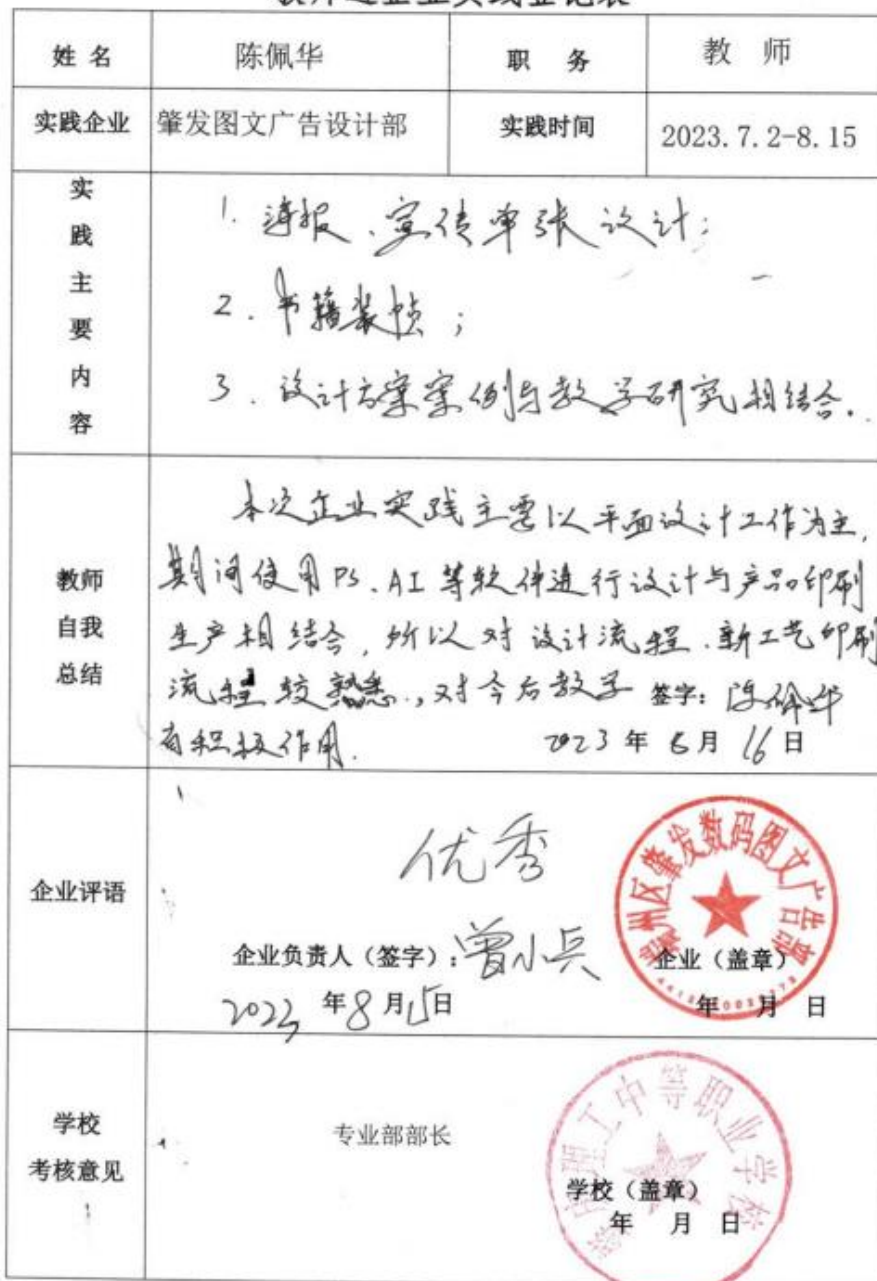 姓 名 陈佩华 职 务 教 师
实践企业 肇发图文广告设计部 实践时间 2023.7.2-8.15
实践主要内容
1. 海报、宣传单张设计;
2. 书籍装帧;
3. 设计方案案例与教学研究相结合.
教师自我总结
本次企业实践主要以平面设计工作为主,
期间使用PS、AI等软件进行设计与产品印刷
生产相结合,所以对设计流程、新工艺印刷
流程较熟悉,对今后教学 签字: 陈佩华
有积极作用. 2023 年 8月 16 日
企业评语
优秀
企业负责人(签字): 曾小兵 企业(盖章)
2023 年 8 月 15 日 年 月 日
区肇发数码图文广告部
学校
考核意见
专业部部长
学校(盖章)
年 月 日
理工中等职业学校